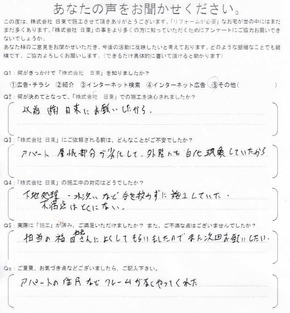 あなたの声をお聞かせください。
この度は、株式会社 日東で施工させて頂きありがとうございます。「リフォームが必要」なお宅が世の中にはまだ
まだ多くあります。「株式会社 日東」の事をより多くの方に知っていただくためにアンケートにご協力お願いでき
ないでしょうか。
あなた様のご意見をお聞かせいただき、今後の活動に反映したいと考えております。どのような些細なことでも結
構です、ご協力よろしくお願いします。（できるだけ具体的に書いて頂けると助かります）
Q1 何がきっかけで「株式会社 日東」を知りましたか？
①広告・チラシ ②紹介 ③インターネット検索 ④インターネット広告 ⑤その他（ ）
Q2 何が決めてとなって、「株式会社 日東」での施工をお決めになりましたか？
以前 ㈱日東にお願いしたから。
Q3 「株式会社 日東」にご依頼される前は、どんなことがご不安でしたか？
アパート 屋根部分が劣化して、外壁も 白化現象していたから
Q4 「株式会社 日東」の施工中の対応はどうでしたか？
下地処理・水洗いなど 手を抜かずに施工していた。
不満点はとくにない。
Q5 実際に「施工」が済み、ご満足いただけましたか？ また、ご不満な点はございませんでしたか？
担当の さんによくしてもらいましたので また次回お願いしたい。
Q6 ご意見、お気づき点などございましたら、ご記入下さい。
アパートの住民など クレームがなくやってくれた